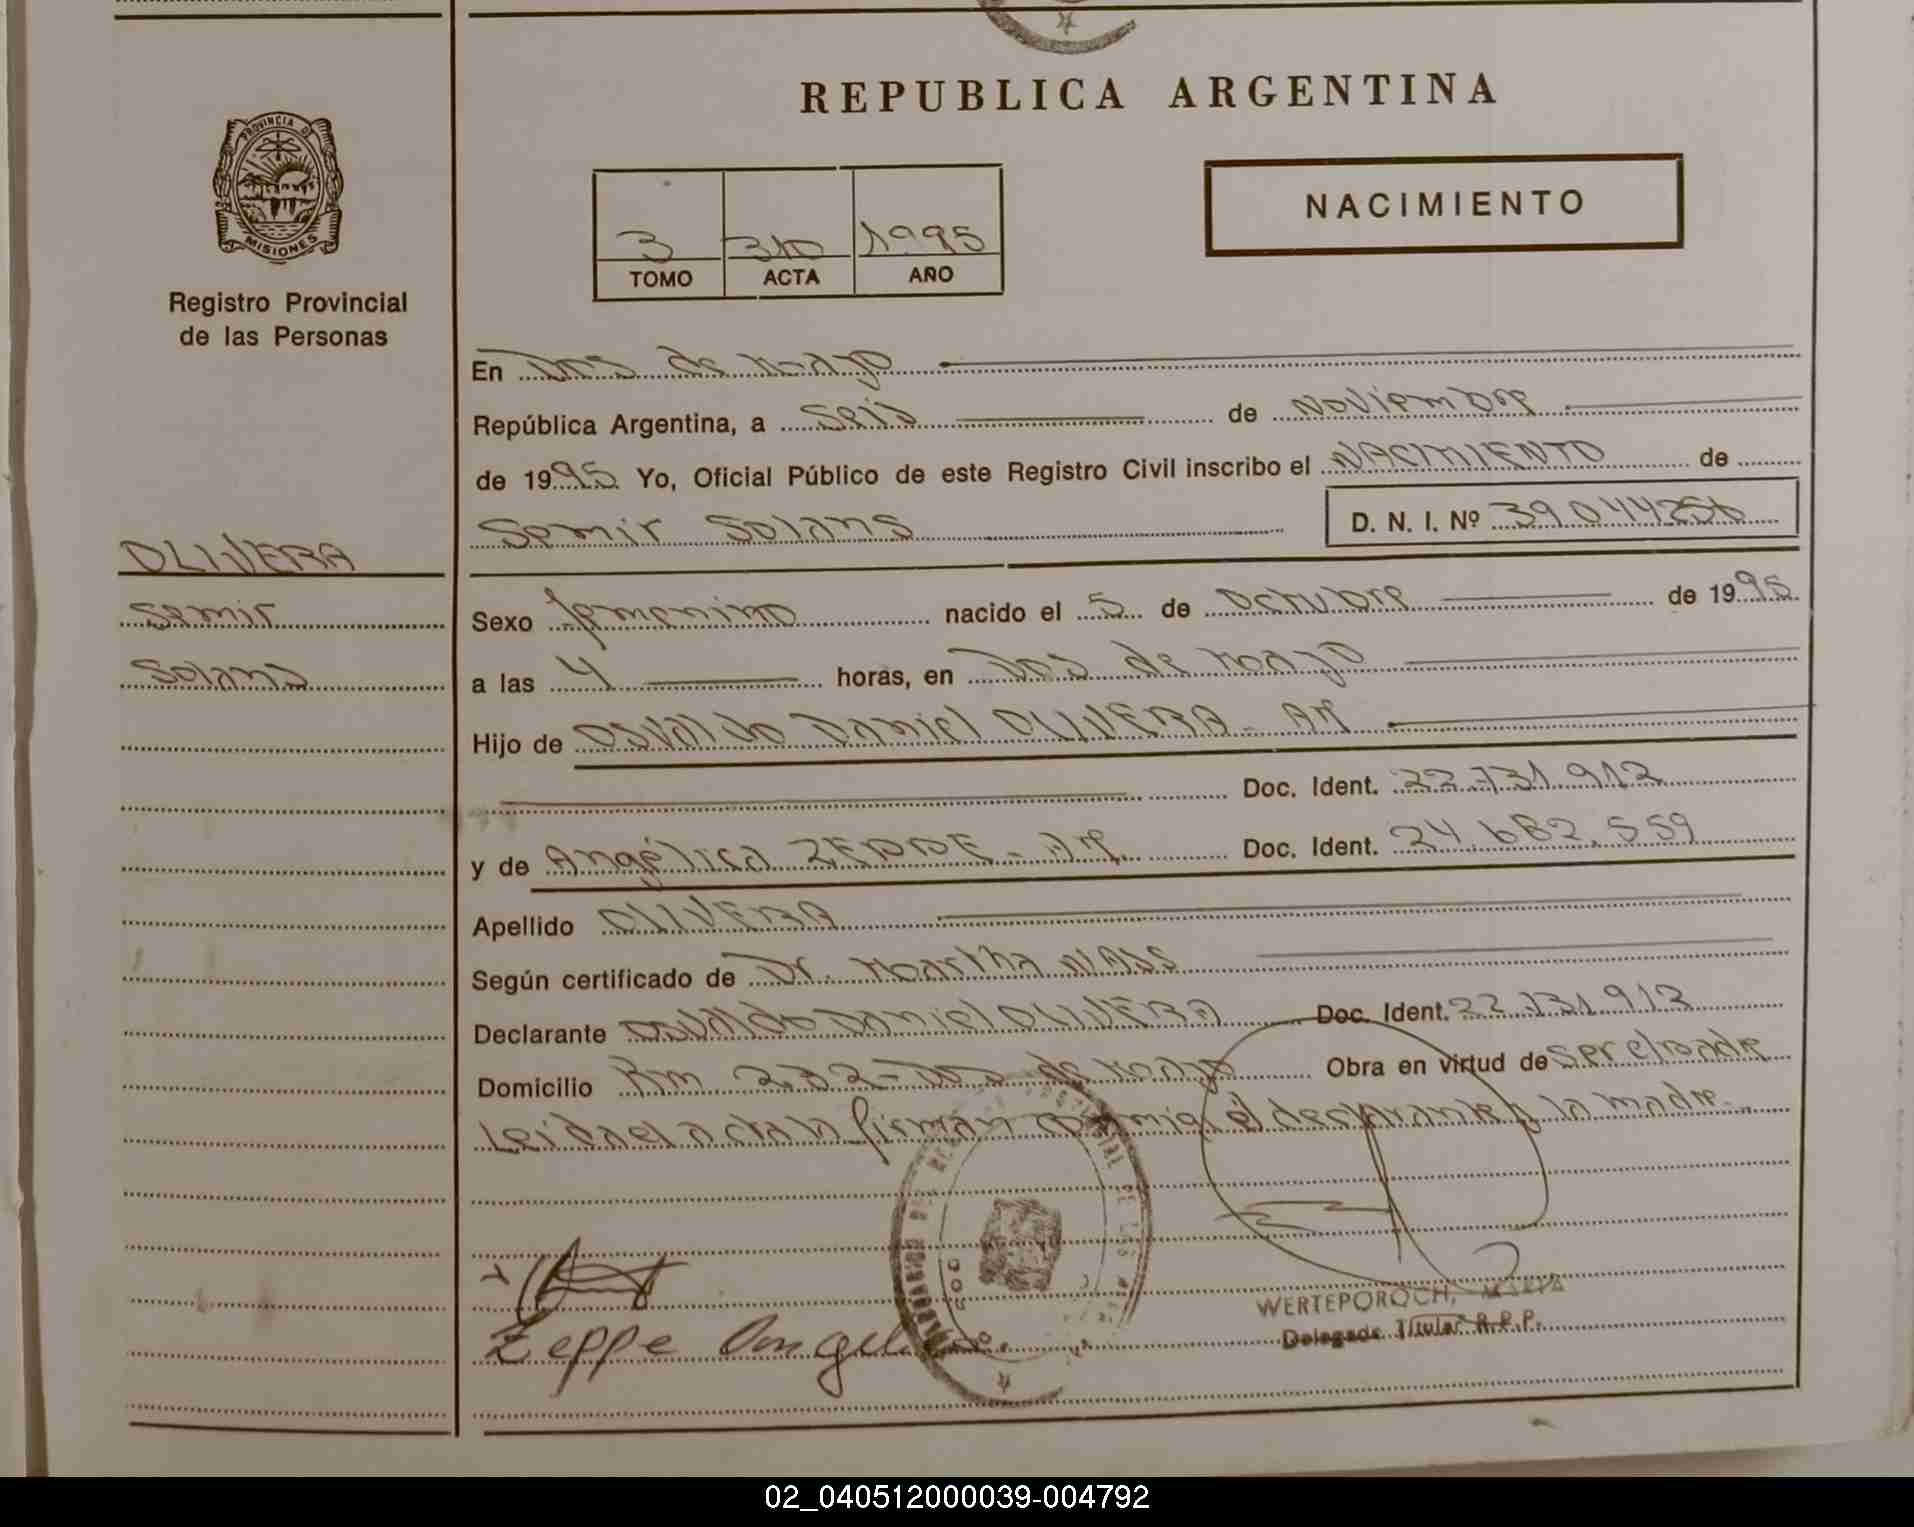 REPUBLICA ARGENTINA
PROVINCIA DE
MISIONES
Registro Provincial
de las Personas
NACIMIENTO
3 310 1995
TOMO ACTA AÑO
En Dos de Mayo
República Argentina, a seis de Noviembre
de 1995 Yo, Oficial Público de este Registro Civil inscribo el NACIMIENTO de
Semir Solans D. N. I. Nº 39044256
OLIVERA
Semir
Solans
Sexo femenino nacido el 5 de octubre de 1995
a las 4 horas, en Dos de Mayo
Hijo de Osvaldo Daniel OLIVERA - Ar
Doc. Ident. 22.731.912
y de Angélica ZEPPE - Ar. Doc. Ident. 24.682.559
Apellido OLIVERA
Según certificado de Dr. Martha
Declarante Osvaldo Daniel OLIVERA Doc. Ident. 22.731.912
Domicilio Km 232 - Dos de Mayo Obra en virtud de ser el padre
Leida el acta la firman conmigo el declarante y la madre.
Zeppe Angelica
WERTEPOROCH, MARIA
Delegada Titular R.P.P.
02_040512000039-004792